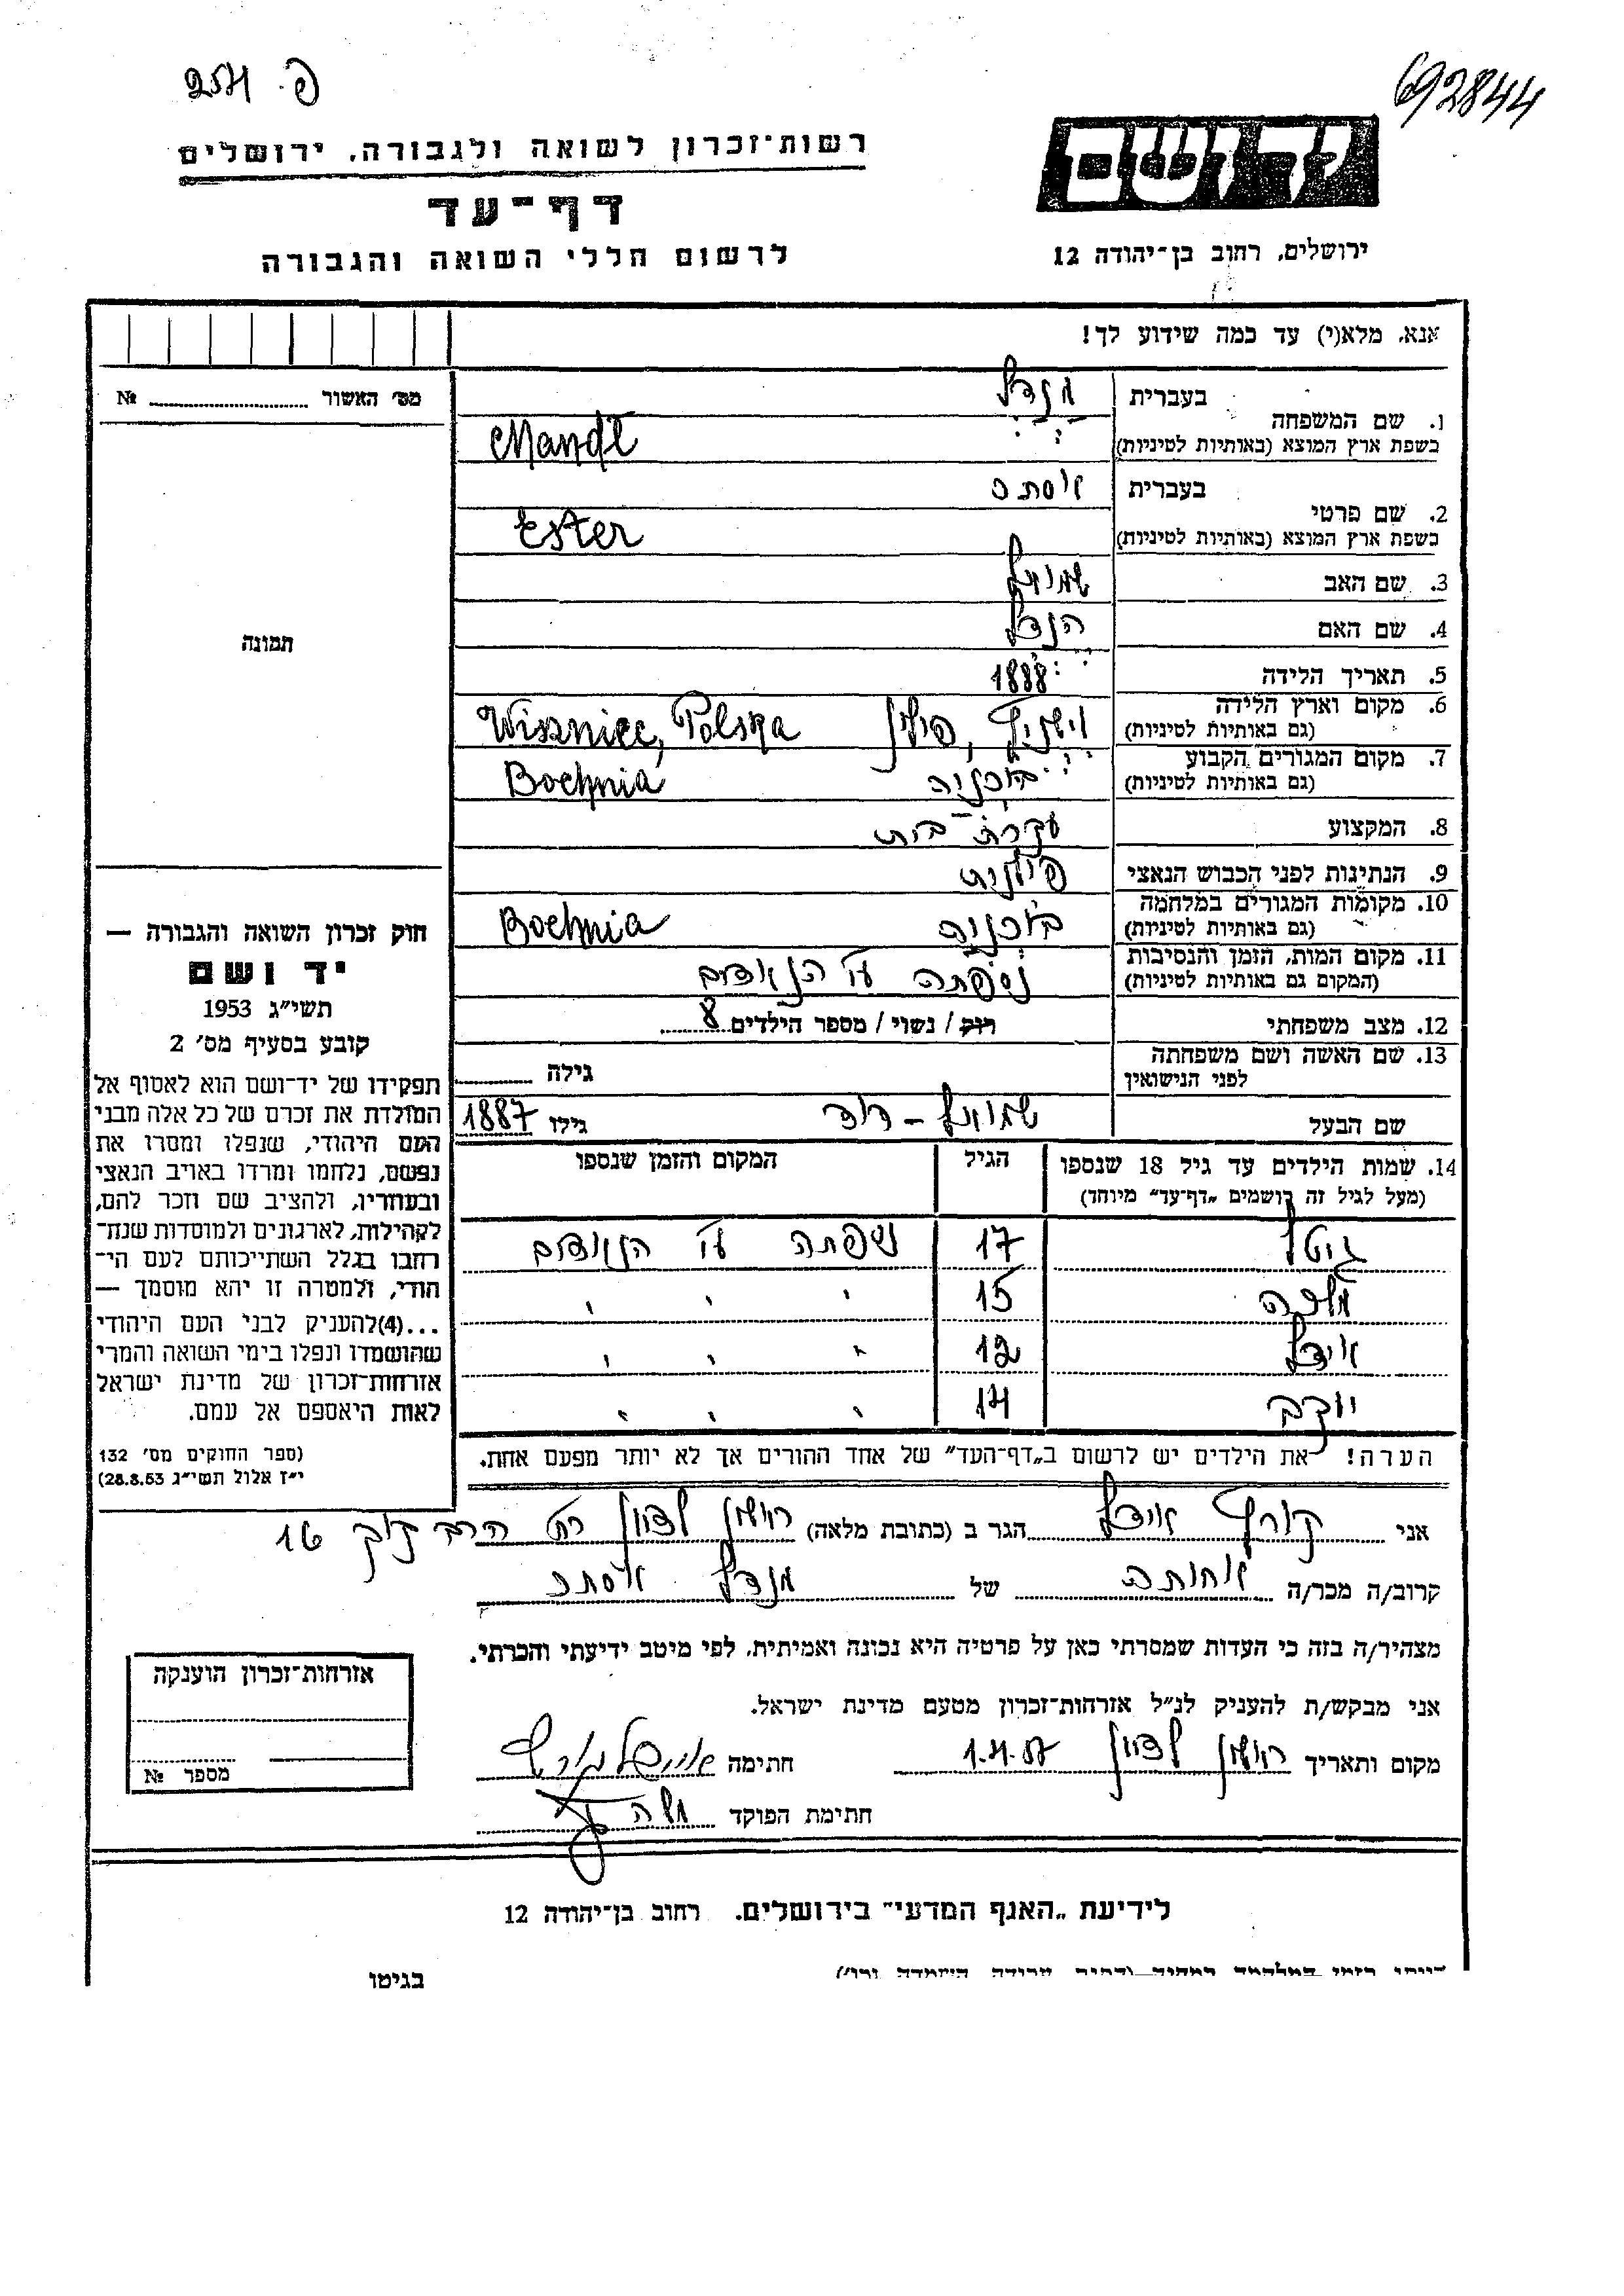 692844
פ. 2571
יד ושם
רשות־זכרון לשואה ולגבורה, ירושלים
דף־עד
ירושלים, רחוב בן־יהודה 12
לרשום חללי השואה והגבורה
אנא, מלא(י) עד כמה שידוע לך!
מס' האשור № 
1. שם המשפחה
בעברית מנדל
בשפת ארץ המוצא (באותיות לטיניות) Mandl
2. שם פרטי
בעברית אסתר
בשפת ארץ המוצא (באותיות לטיניות) Ester
3. שם האב שמואל
4. שם האם הנדל
5. תאריך הלידה 1888
6. מקום וארץ הלידה
(גם באותיות לטיניות) וישניץ, פולין Wiszniec, Polska
7. מקום המגורים הקבוע
(גם באותיות לטיניות) בוכניה Bochnia
8. המקצוע עקרת־בית
9. הנתינות לפני הכבוש הנאצי פולנית
10. מקומות המגורים במלחמה
(גם באותיות לטיניות) בוכניה Bochnia
11. מקום המות, הזמן והנסיבות
(המקום גם באותיות לטיניות) נספתה ע"י הנאצים
12. מצב משפחתי רוק / נשוי / מספר הילדים 8
13. שם האשה ושם משפחתה
לפני הנישואין גילה
שם הבעל שמואל - דוד גילו 1887
14. שמות הילדים עד גיל 18 שנספו הגיל המקום והזמן שנספו
(מעל לגיל זה רושמים „דף־עד" מיוחד)
גיטל 17 נשפתה ע"י הנאצים
מלכה 15 " " "
אידל 12 " " "
יעקב 14 " " "
הערה! את הילדים יש לרשום ב„דף־העד" של אחד ההורים אך לא יותר מפעם אחת.
תמונה
חוק זכרון השואה והגבורה —
יד ושם
תשי״ג 1953
קובע בסעיף מס׳ 2
תפקידו של יד־ושם הוא לאסוף אל
המולדת את זכרם של כל אלה מבני
העם היהודי, שנפלו ומסרו את
נפשם, נלחמו ומרדו באויב הנאצי
ובעוזריו, ולהציב שם וזכר להם,
לקהילות, לארגונים ולמוסדות שנח־
רחבו בגלל השתייכותם לעם הי־
הודי, ולמטרה זו יהא מוסמך —
...(4)להעניק לבני העם היהודי
שהושמדו ונפלו בימי השואה והמרי
אזרחות־זכרון של מדינת ישראל
לאות היאספם אל עמם.
(ספר החוקים מס׳ 132
י״ז אלול תשי״ג 28.8.53)
אני קורץ אידל הגר ב (כתובת מלאה) ראשון לציון רח' הרב קוק 16
קרוב/ה מכר/ה אחותה של מנדל אסתר
מצהיר/ה בזה כי העדות שמסרתי כאן על פרטיה היא נכונה ואמיתית, לפי מיטב ידיעתי והכרתי.
אני מבקש/ת להעניק לנ״ל אזרחות־זכרון מטעם מדינת ישראל.
מקום ותאריך ראשון לציון 1.4.57 חתימה
חתימת הפוקד משה
אזרחות־זכרון הוענקה
מספר №
לידיעת „האגף המדעי" בירושלים. רחוב בן־יהודה 12
בגיטו